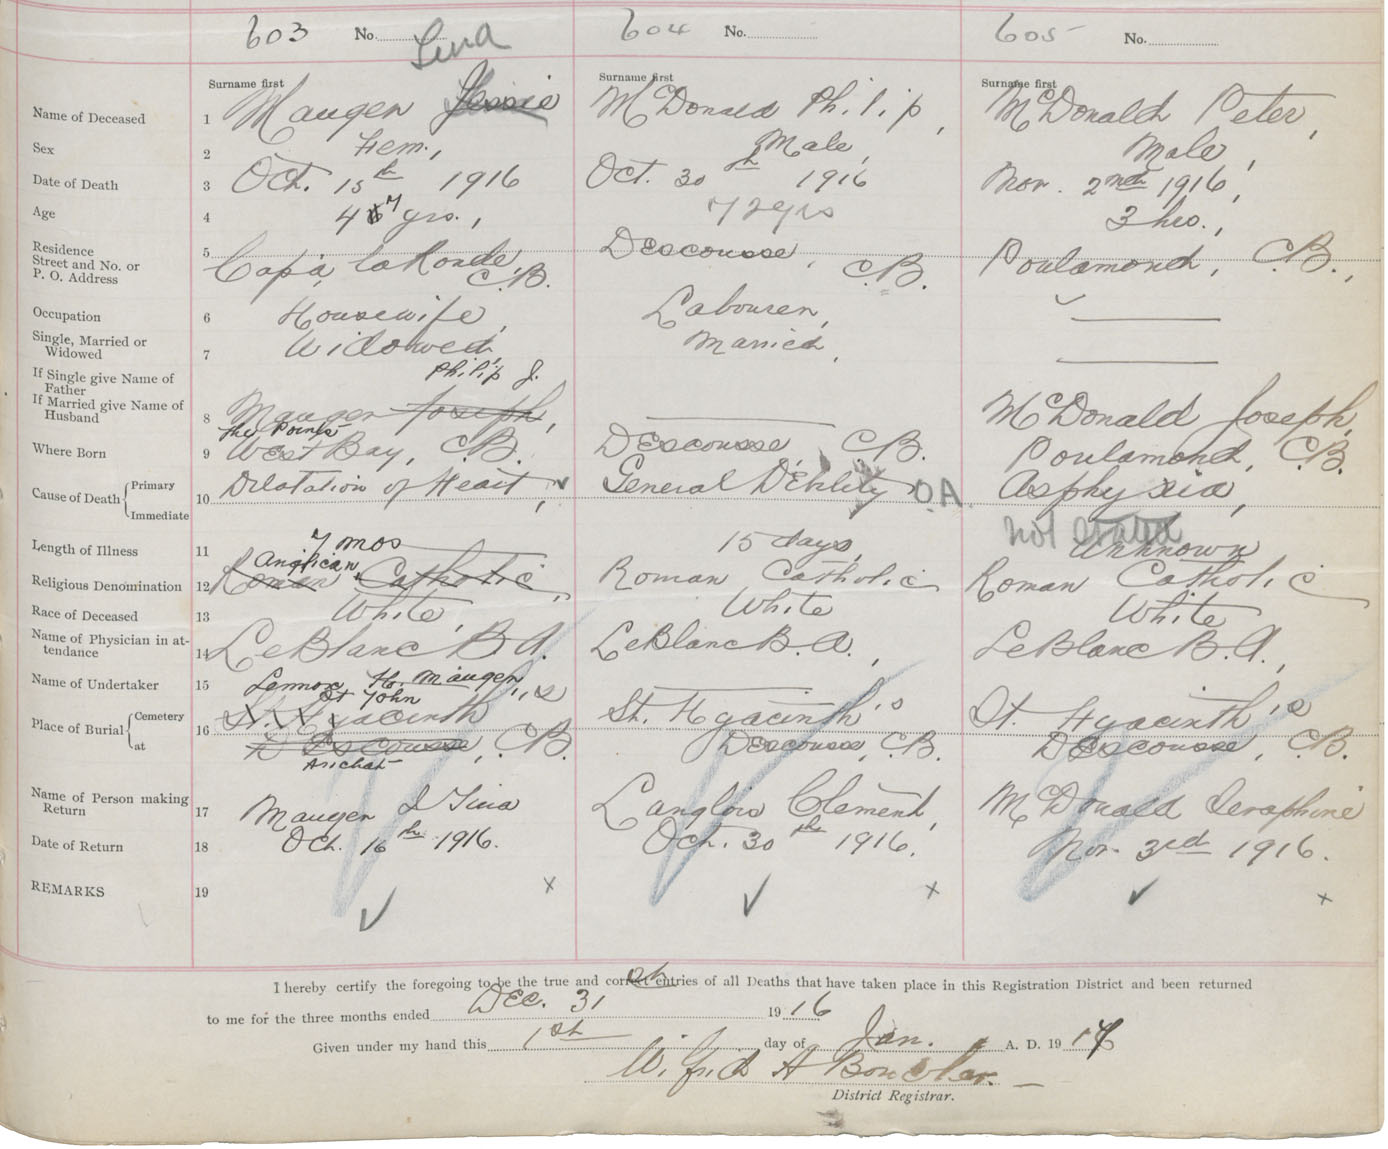 603 No. 604 No. 605 No.
Lina
Surname first Surname first Surname first
Name of Deceased 1 Mauger Jessie McDonald Philip, McDonald Peter,
Sex 2 Fem., Male, Male,
Date of Death 3 Oct. 15th 1916 Oct. 30th 1916 Nov. 2nd 1916,
Age 4 47 yrs., 72 yrs 3 hrs.,
Residence
Street and No. or
P. O. Address
5 Cap à la Ronde, C.B. Descousse, C.B. Poulamond, C.B.,
Occupation 6 Housewife, Labourer,
Single, Married or
Widowed
7 Widowed, Married,
If Single give Name of
Father
If Married give Name of
Husband
Philip J.
8 Mauger Joseph, McDonald Joseph,
The Points
Where Born 9 West Bay, C.B. Descousse C.B. Poulamond, C.B.
Cause of Death Primary
Immediate
10 Dilatation of Heart, General Debility O.A. Asphyxia,
not stated
Length of Illness 11 7 mos 15 days, Unknown
Anglican
Religious Denomination 12 Roman Catholic, Roman Catholic Roman Catholic
Race of Deceased 13 White, White White
Name of Physician in at-
tendance
14 LeBlanc B.A. LeBlanc B.A., LeBlanc B.A.,
Name of Undertaker 15 Lennox Ho. Mauger,
St John
Place of Burial Cemetery
at
16 St. Hyacinth's St. Hyacinth's St. Hyacinth's
Descousse, C.B. Descousse, C.B. Descousse, C.B.
Arichat
Name of Person making
Return
17 Mauger Langlois Clement, McDonald Seraphine
Date of Return 18 Oct. 16th 1916. Oct. 30th 1916. Nov. 3rd 1916.
REMARKS 19 x x x
I hereby certify the foregoing to be the true and correct entries of all Deaths that have taken place in this Registration District and been returned
to me for the three months ended Dec. 31 1916
Given under my hand this 1st day of Jan. A. D. 1917
Wilfrid A
District Registrar.